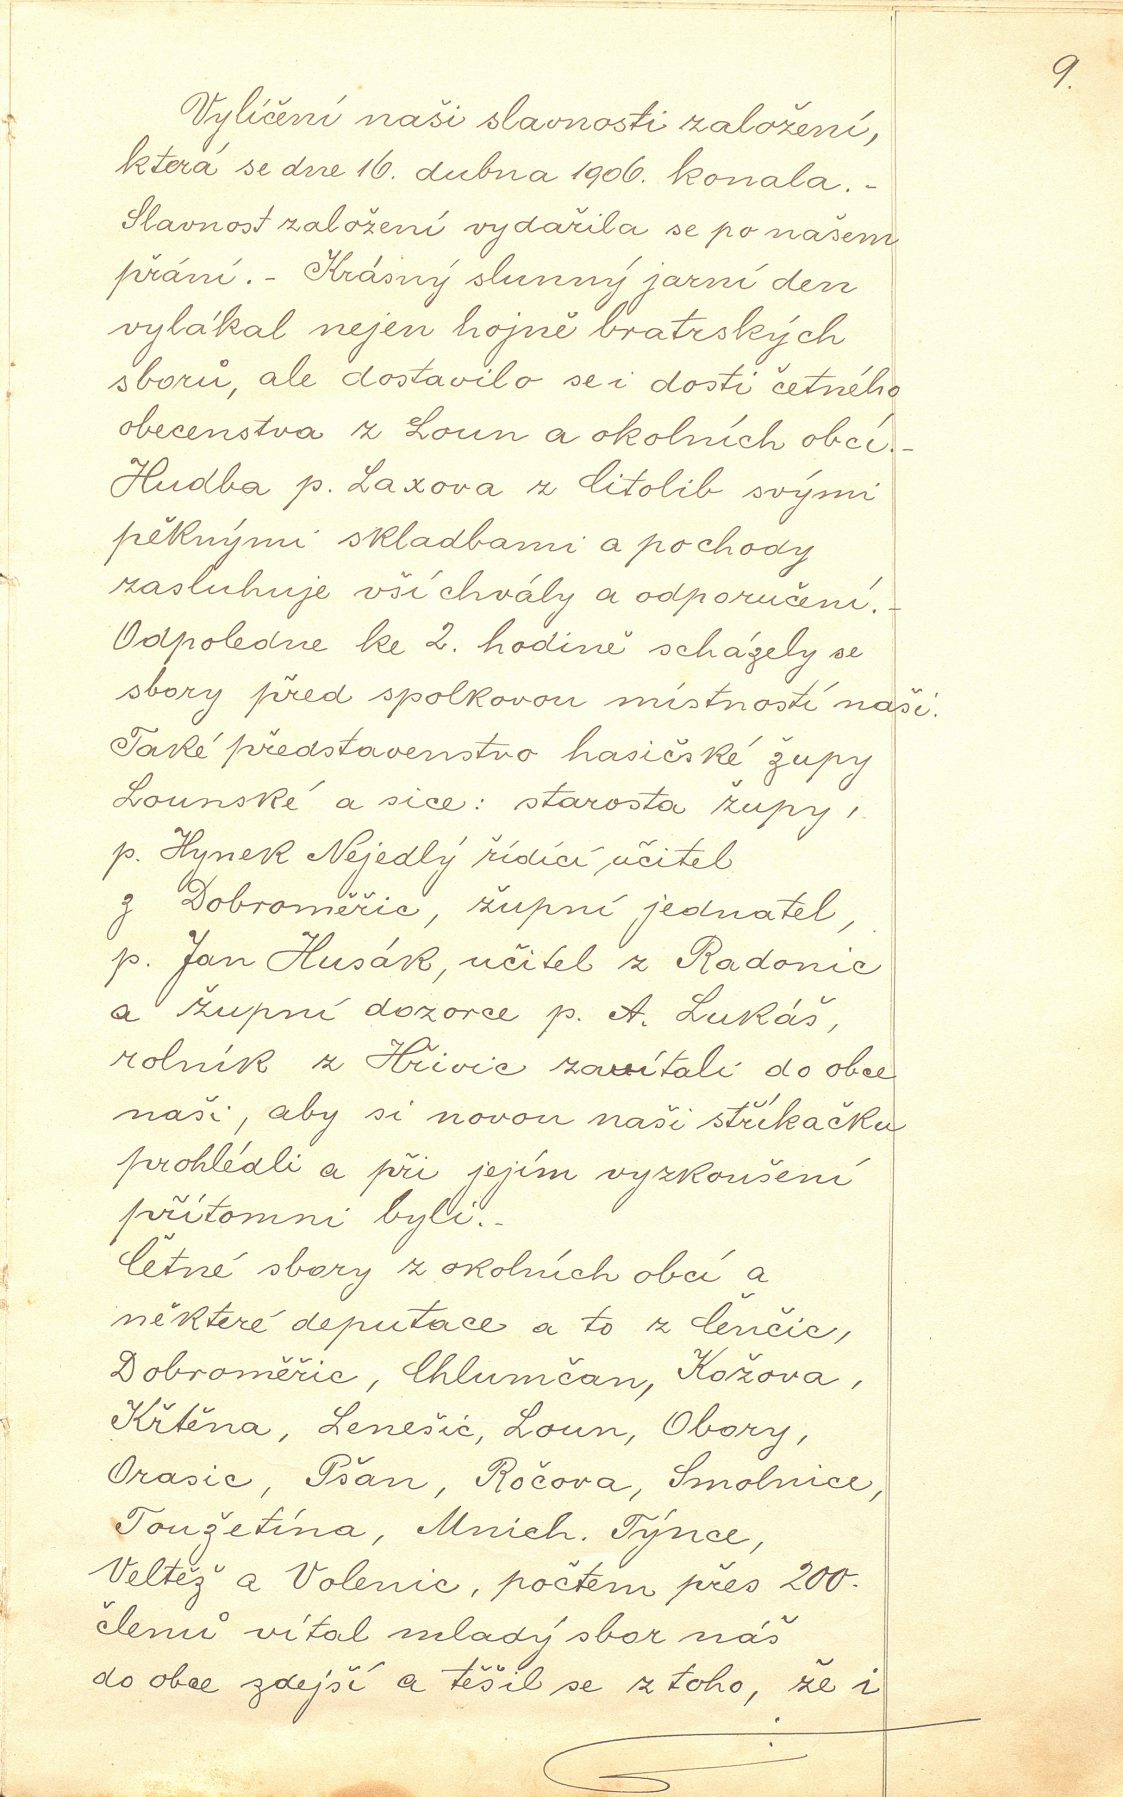 9.
Vylíčení naši slavnosti založení,
která se dne 16. dubna 1906. konala. -
Slavnost založení vydařila se po našem
přání. - Krásný slunný jarní den
vylákal nejen hojně bratrských
sborů, ale dostavilo se i dosti četného
obecenstva z Loun a okolních obcí. -
Hudba p. Laxova z Citolib svými
pěknými skladbami a pochody
zasluhuje vší chvály a odporučení. -
Odpoledne ke 2. hodině scházely se
sbory před spolkovou místností naši.
Také představenstvo hasičské župy
Lounské a sice: starosta župy,
p. Hynek Nejedlý řídící učitel
z Dobroměřic, župní jednatel,
p. Jan Husák, učitel z Radonic
a župní dozorce p. A. Lukáš,
rolník z Hřivic zavítali do obce
naši, aby si novou naši stříkačku
prohlédli a při jejím vyzkoušení
přítomni byli. -
Četné sbory z okolních obcí a
některé deputace a to z Čenčic,
Dobroměřic, Chlumčan, Kožova,
Křtěna, Lenešic, Loun, Obory,
Orasic, Pšan, Ročova, Smolnice,
Toužetína, Mnich. Týnce,
Veltěž a Volenic, počtem přes 200.
členů vítal mladý sbor náš
do obce zdejší a těšil se z toho, že i